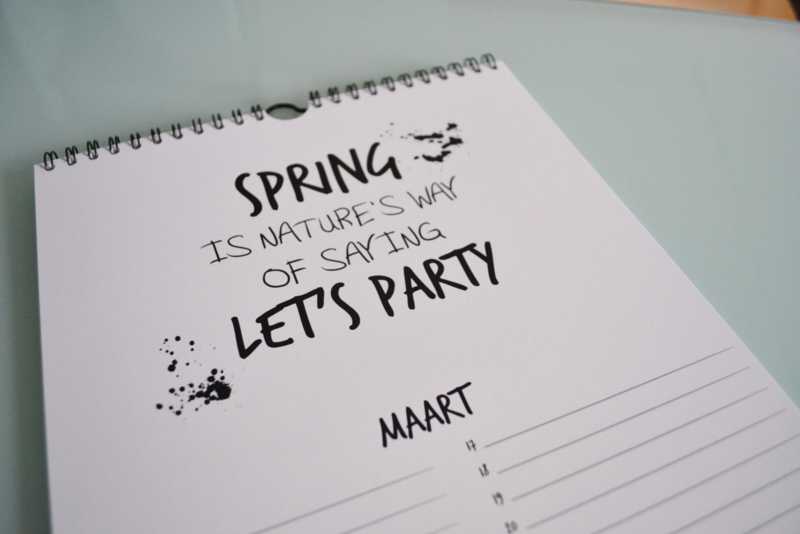 SPRING
IS NATURE'S WAY
OF SAYING
LET'S PARTY
MAART
17
18
19
20